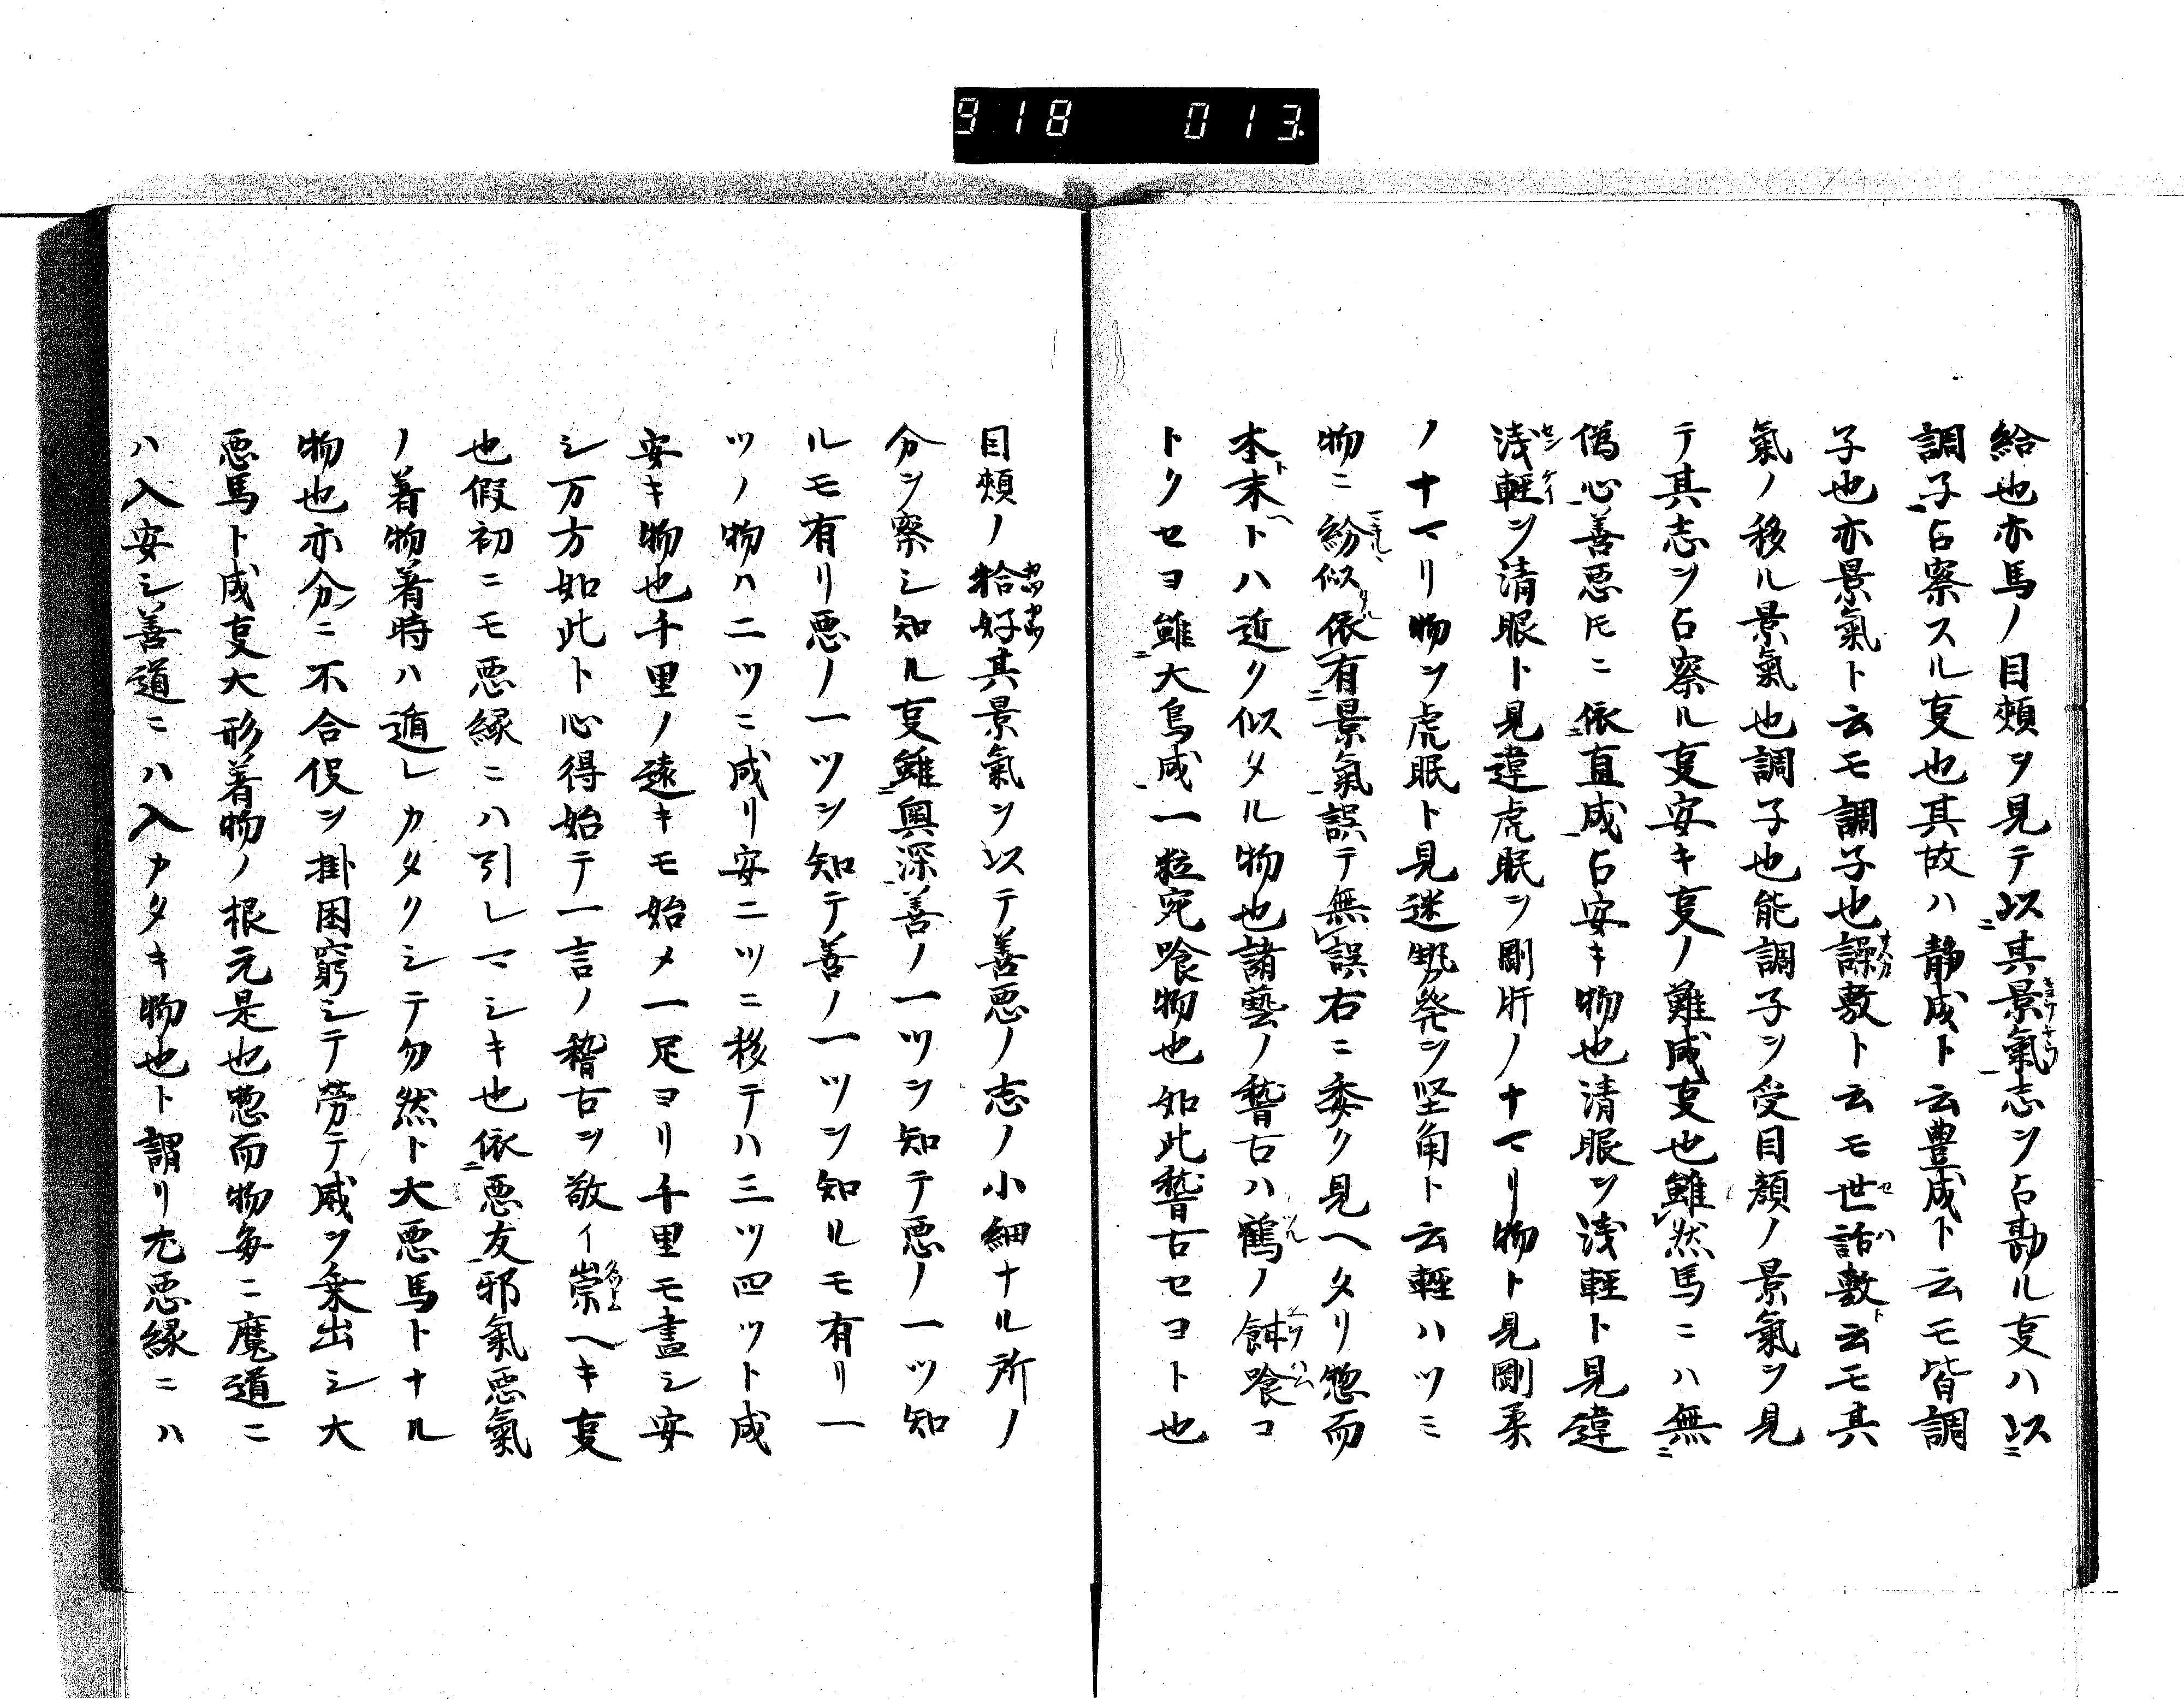 918 013
給也亦馬ノ目頬ヲ見テ以其景氣志ヲ占勘ル叓ハ以
調子占察スル叓也其故ハ静成ト云豊成ト云モ皆調
子也亦景氣ト云モ調子也譟敷ト云モ世話敷云モ其
氣ノ移ル景氣也調子也能調子ヲ受目顔ノ景氣ヲ見
テ其志ヲ占察ル叓安キ叓ノ難成叓也雖然馬ニハ無
偽心善悪モニ依直成占安キ物也清眼ヲ浅軽ト見違
浅軽ヲ清眼ト見違虎眠ヲ剛肝ノナマリ物ト見剛柔
ノナマリ物ヲ虎眠ト見迷
ヲ堅角ト云軽ハツミ
物ニ紛似依有景氣誤テ無誤右ニ委ク見ヘタリ惣而
本末トハ近ク似タル物也諸藝ノ稽古ハ鶴ノ餌喰コ
トクセヨ雖大鳥成一粒宛喰物也如此稽古セヨト也
目頬ノ恰好其景氣ヲ以テ善悪ノ志ノ小細ナル所ノ
分ヲ察シ知ル叓雖奥深善ノ一ツヲ知テ悪ノ一ツ知
ルモ有リ悪ノ一ツヲ知テ善ノ一ツヲ知ルモ有リ一
ツノ物ハ二ツニ成リ安ニツニ移テハ三ツ四ツト成
安キ物也千里ノ遠キモ始メ一足ヨリ千里モ盡シ安
シ万方如此ト心得始テ一言ノ稽古ヲ敬イ崇ヘキ叓
也假初ニモ悪縁ニハ引レマシキ也依悪友邪氣悪氣
ノ着物着時ハ遁レカタクシテ勿然ト大悪馬トナル
物也亦分ニ不合役ヲ掛困窮シテ労テ威ヲ乗出シ大
悪馬ト成叓大形着物ノ根元是也惣而物毎ニ魔道ニ
ハ入安シ善道ニハ入カタキ物也ト謂リ尤悪縁ニハ